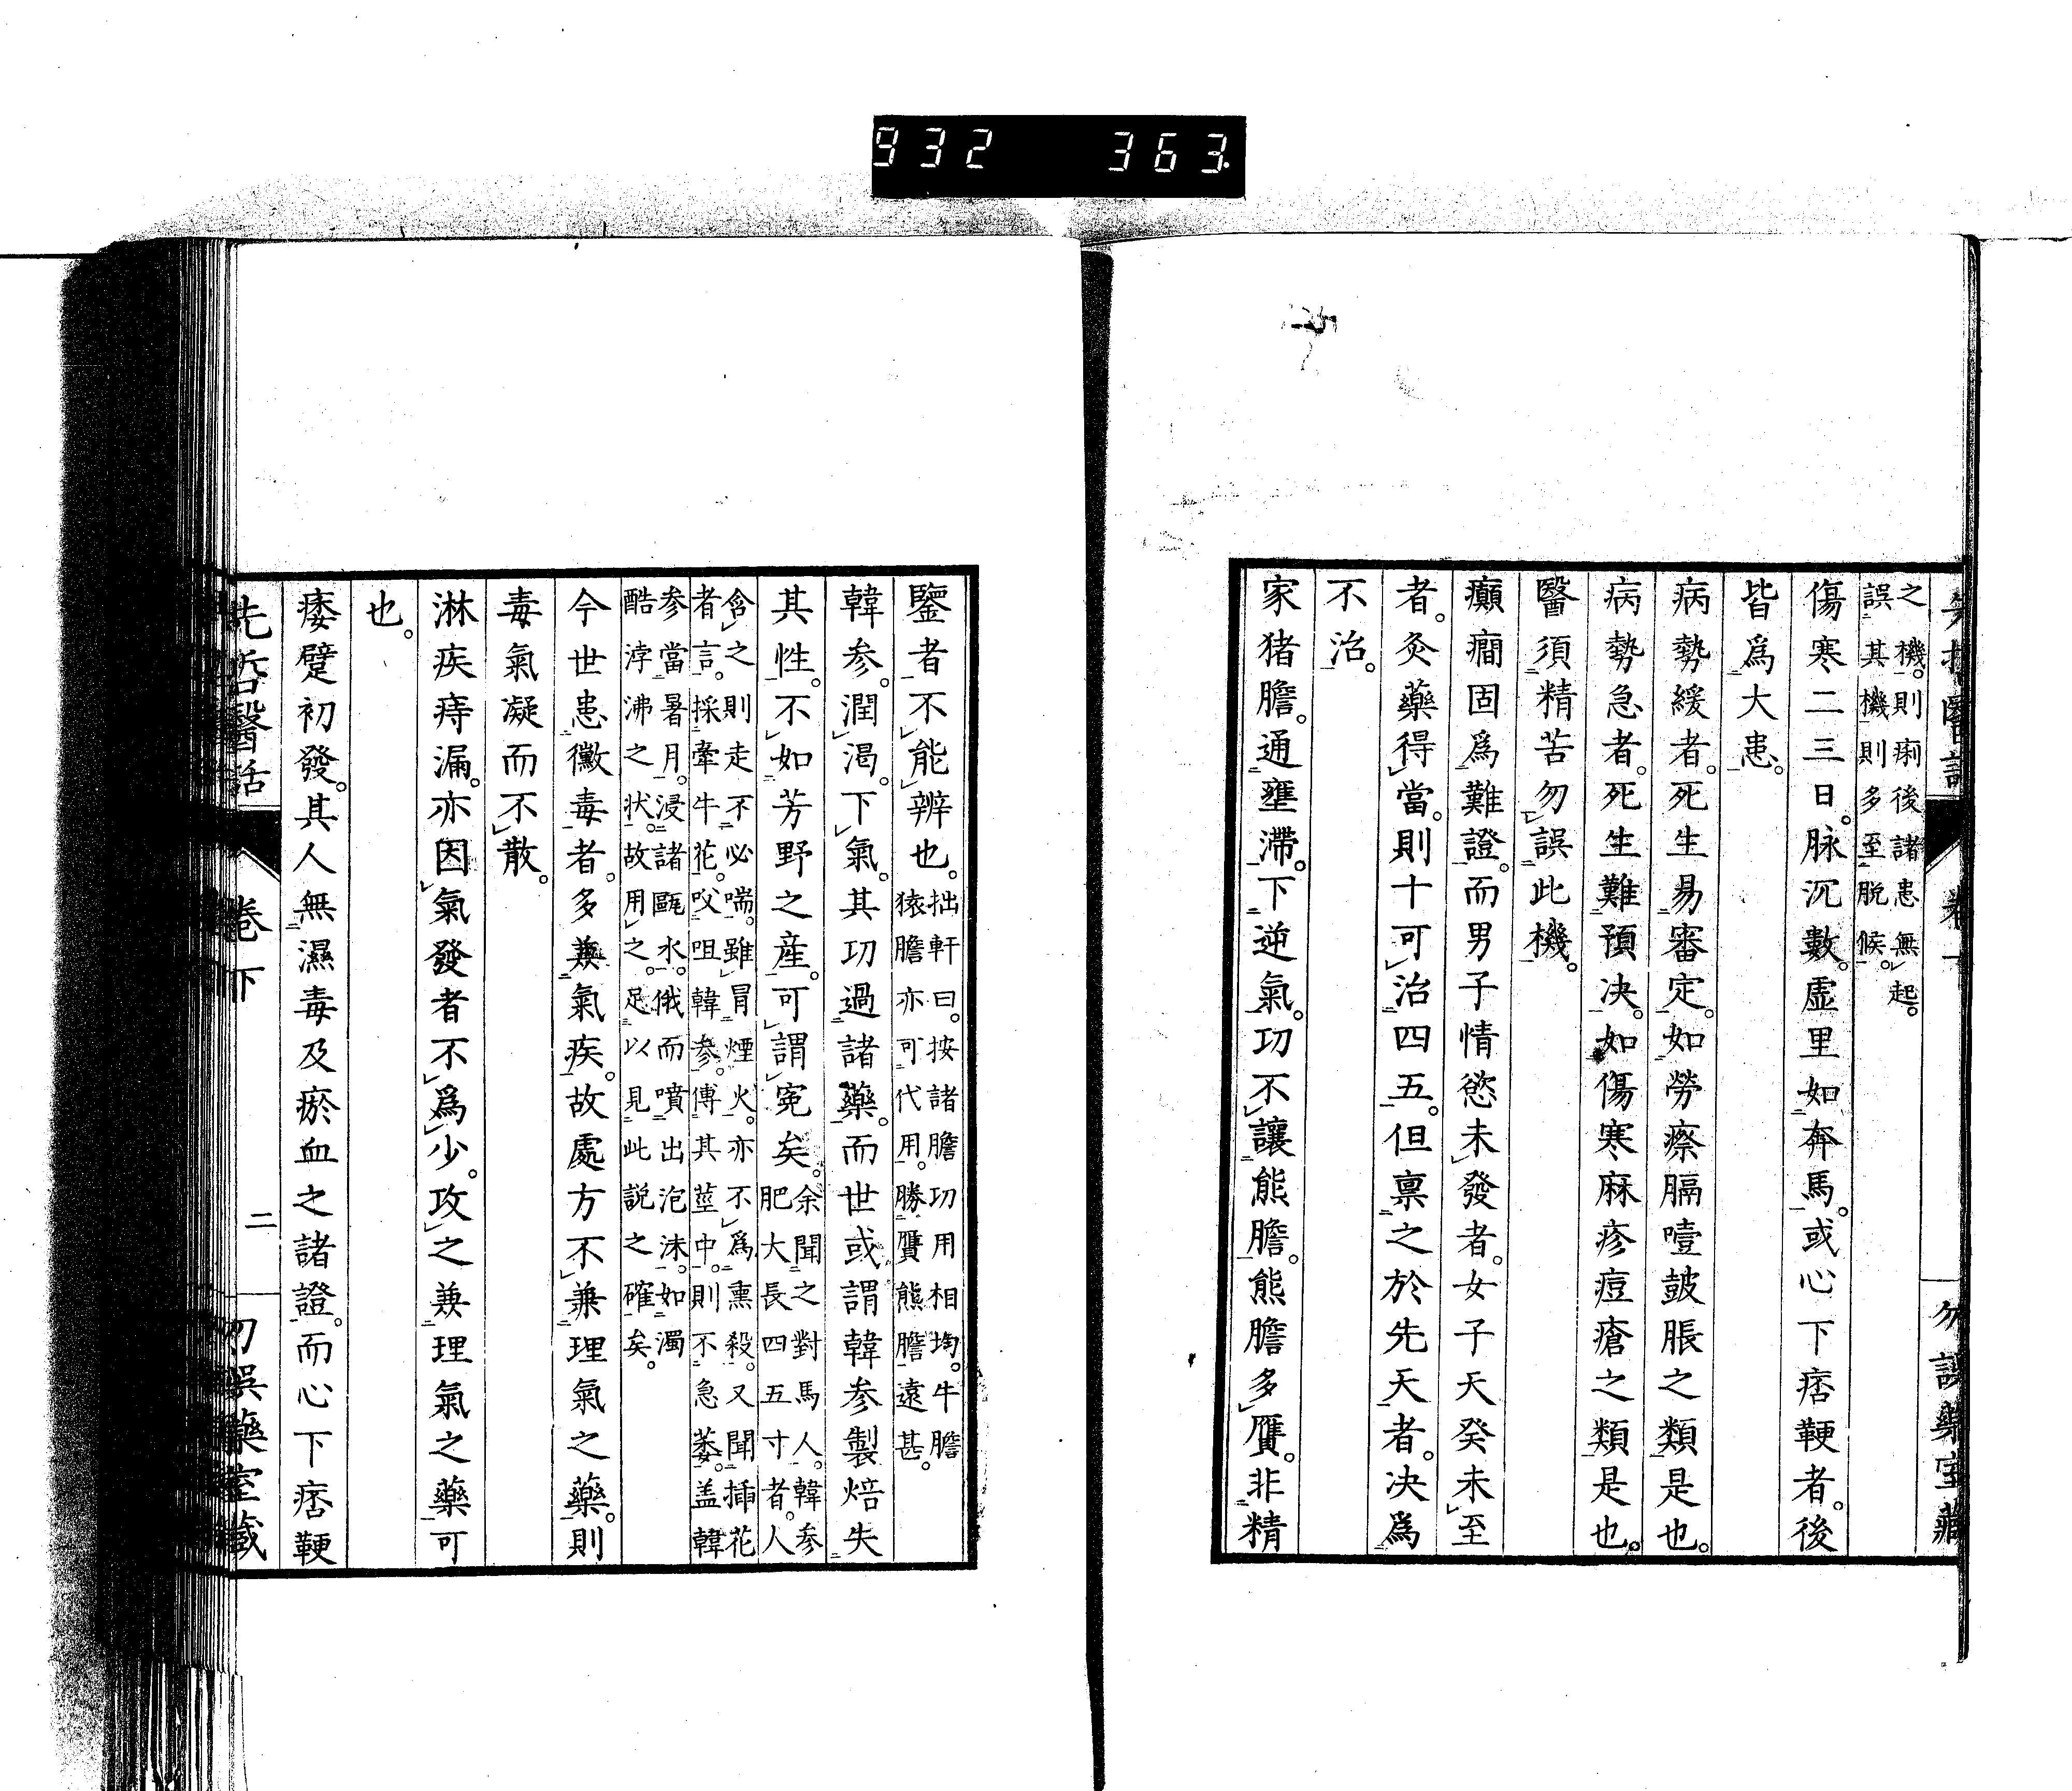 932 363
先哲醫話 卷下 勿誤藥室藏
之機。則痢後諸患無起。
誤其機則多至脫候。
傷寒二三日。脉沉數。虛里如奔馬。或心下痞鞕者。後
皆爲大患。
病勢緩者。死生易審定。如勞瘵膈噎鼓脹之類是也。
病勢急者。死生難預決。如傷寒麻疹痘瘡之類是也。
醫須精苦勿誤此機。
癲癇固爲難證。而男子情慾未發者。女子天癸未至
者。灸藥得當。則十可治四五。但稟之於先天者。决爲
不治。
家猪膽。通壅滯。下逆氣。功不讓熊膽。熊膽多贋。非精
鑒者不能辨也。拙軒曰。按諸膽功用相均。牛膽
猿膽亦可代用。勝贋熊膽遠甚。
韓參。潤渴。下氣。其功過諸藥。而世或謂韓參製焙失
其性。不如芳野之産。可謂冤矣。余聞之對馬人。韓參
肥大長四五寸者。人
含之則走不必喘。雖冒煙火。亦不爲熏殺。又聞揷花
者言。採牽牛花。㕮咀韓參。傅其莖中。則不急萎。盖韓
參當暑月。浸諸甌水。俄而噴出泡沫。如濁
酷浡沸之状。故用之。足以見此説之確矣。
今世患黴毒者。多兼氣疾。故處方不兼理氣之藥。則
毒氣凝而不散。
淋疾痔漏。亦因氣發者不爲少。攻之兼理氣之藥可
也。
痿躄初發。其人無濕毒及瘀血之諸證。而心下痞鞕
先哲醫話 卷下 二 勿誤藥室藏